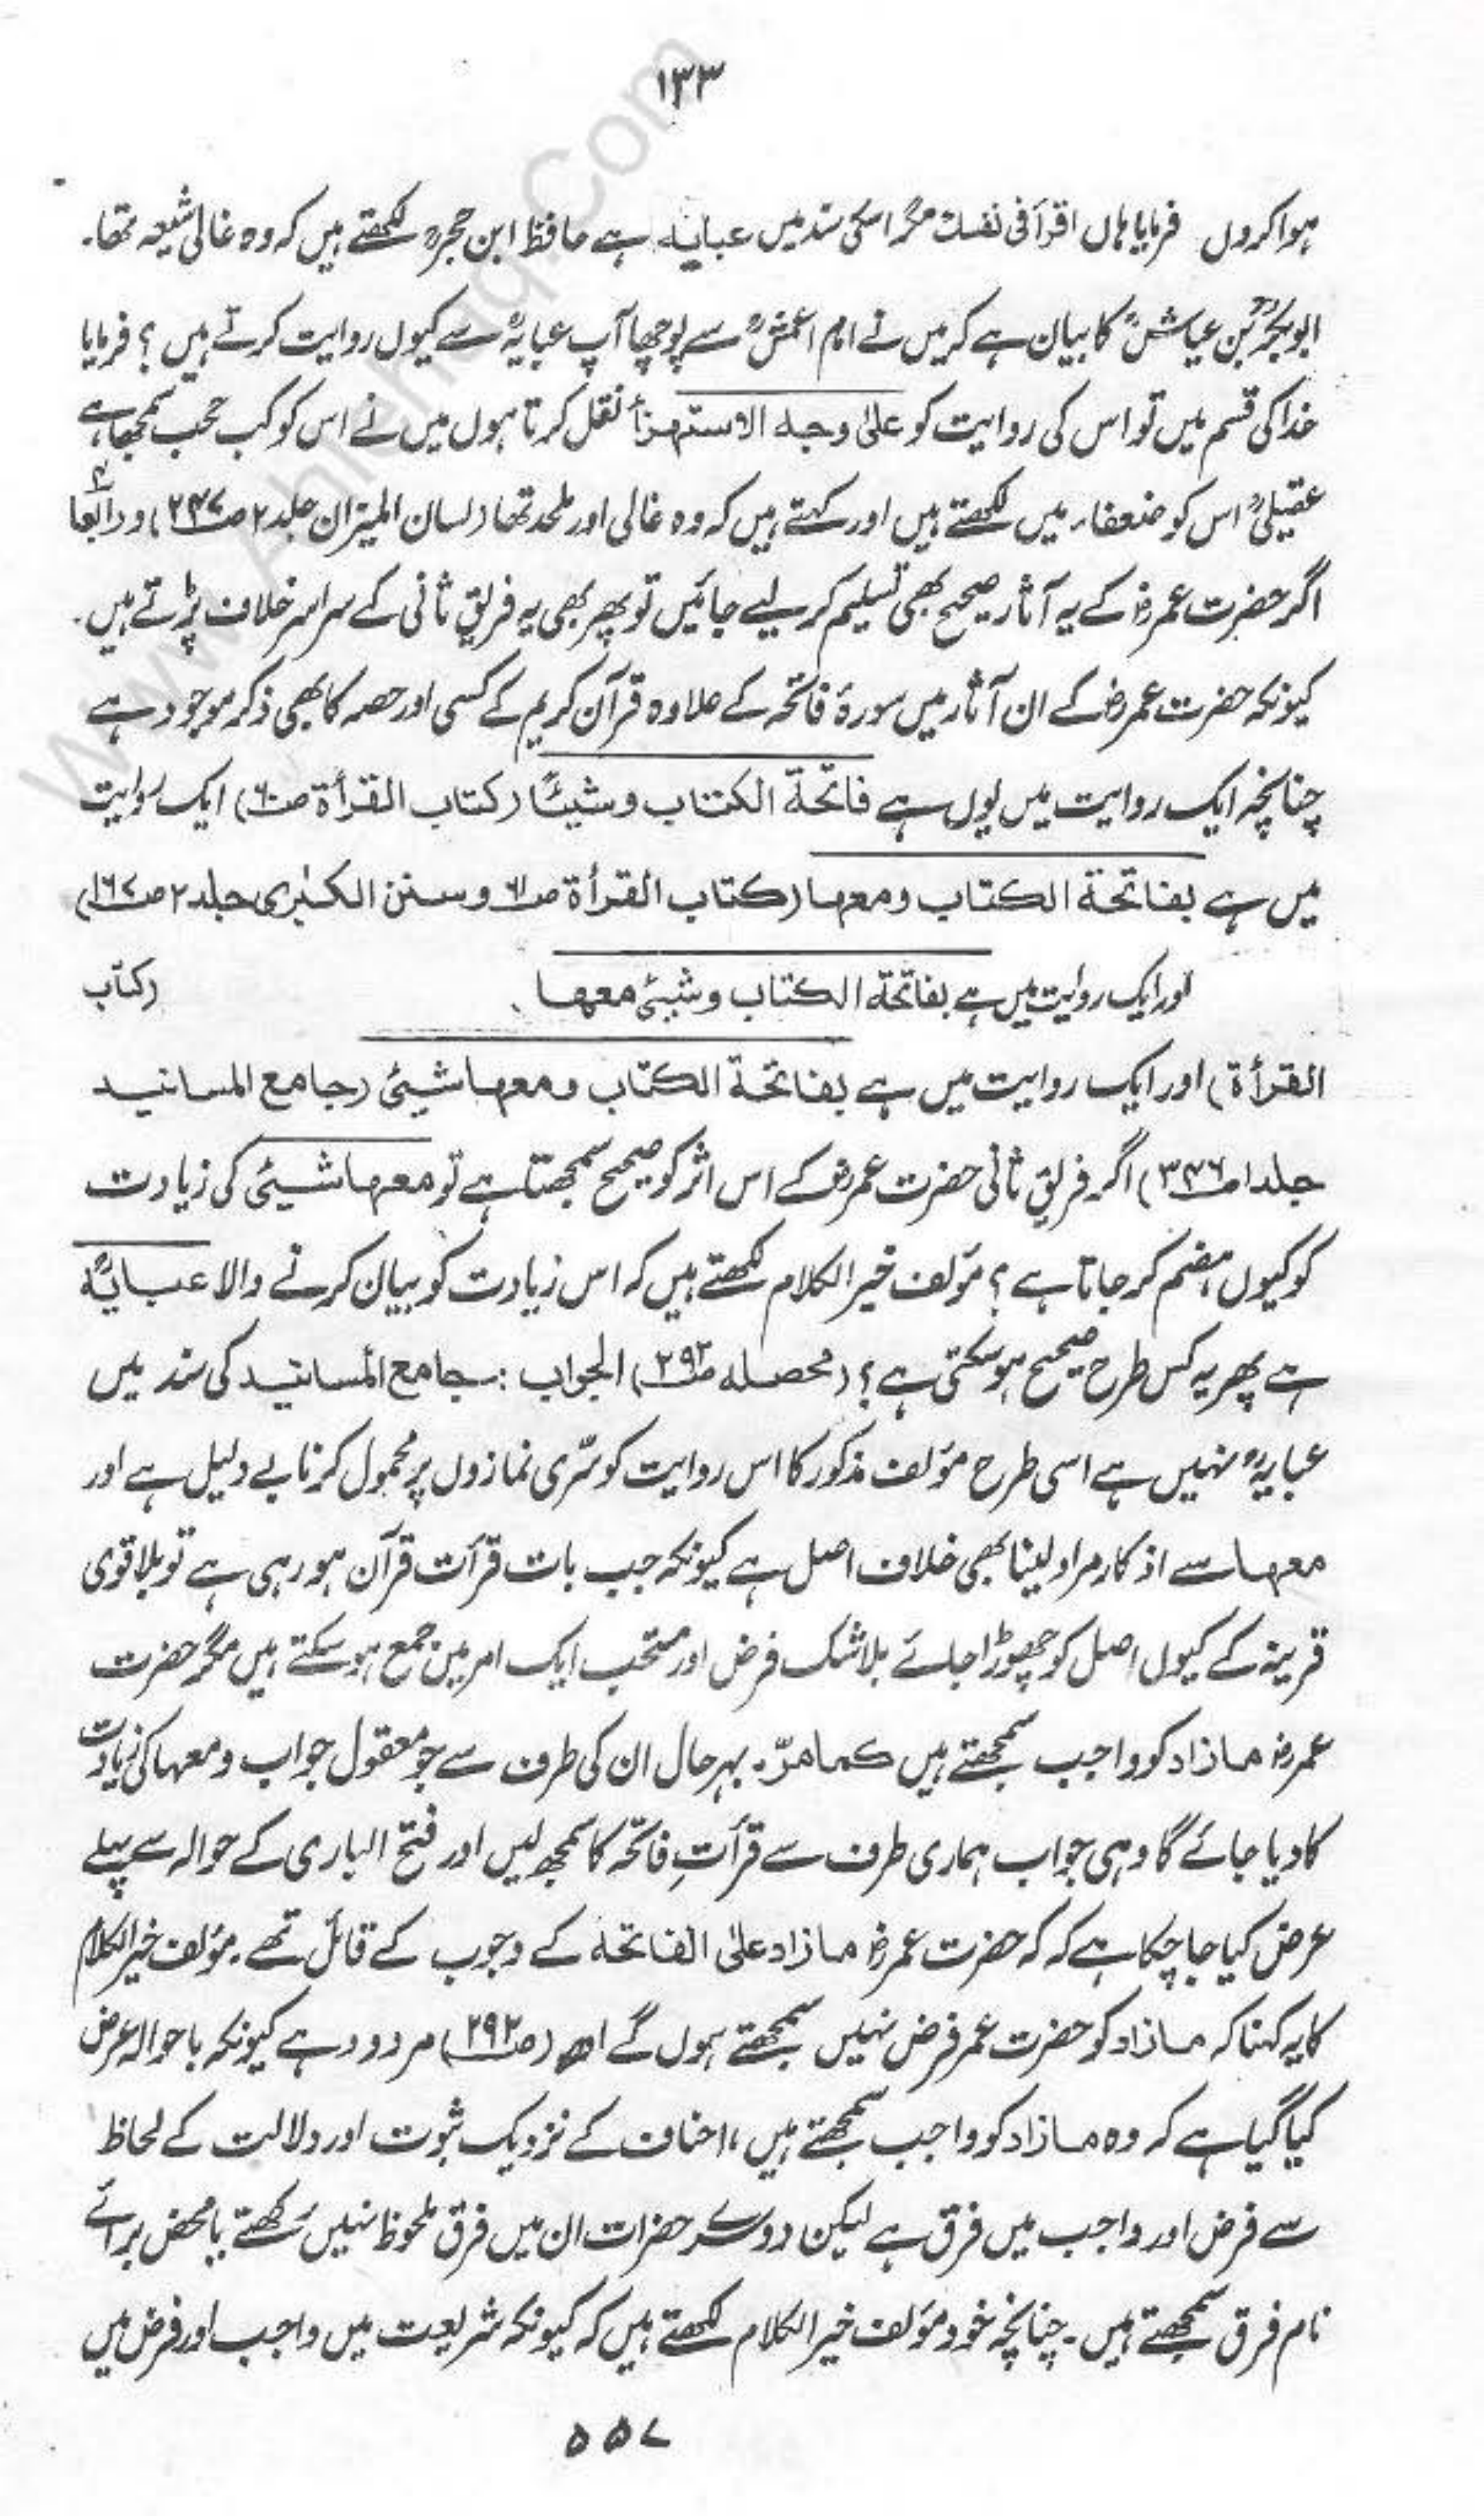 ۱۳۳
ہوا کروں فرمایا ہاں اقرأ فی نفسك مگر اسکی سند میں عبایہ ہے حافظ ابن حجرؒ لکھتے ہیں کہ وہ غالی شیعہ تھا۔
ابوبکرؒ بن عیاشؒ کا بیان ہے کہ میں نے امام اعمشؒ سے پوچھا آپ عبایہؒ سے کیوں روایت کرتے ہیں ؟ فرمایا
خدا کی قسم میں تو اس کی روایت کو علیٰ وجہ الاستہزأ نقل کرتا ہوں میں نے اس کو کب حجب سمجھا ہے
عقیلیؒ اس کو ضعفاء میں لکھتے ہیں اور کہتے ہیں کہ وہ غالی اور ملحد تھا (لسان المیزان جلد ۲ صـ۲۴۷) و رابعاً
اگر حضرت عمرؓ کے یہ آثار صحیح بھی تسلیم کر لیے جائیں تو پھر بھی یہ فریق ثانی کے سراسر خلاف پڑتے ہیں۔
کیونکہ حضرت عمرؓ کے ان آثار میں سورۂ فاتحہ کے علاوہ قرآن کریم کے کسی اور حصہ کا بھی ذکر موجود ہے
چنانچہ ایک روایت میں یوں ہے فاتحة الکتاب و شیئًا (کتاب القرأة صـ۶۰) ایک روایت
میں ہے بفاتحة الکتاب ومعہا (کتاب القرأة صـ۶۱ و سنن الکبریٰ جلد ۲ صـ۱۶۷)
اور ایک روایت میں ہے بفاتحة الکتاب و شیئ معہا (کتاب
القرأة) اور ایک روایت میں ہے بفاتحة الکتاب ومعہا شیئ (جامع المسانید
جلد ۱ صـ۳۴۶) اگر فریق ثانی حضرت عمرؓ کے اس اثر کو صحیح سمجھتا ہے تو معہا شیئ کی زیادت
کو کیوں ہضم کر جاتا ہے ؟ مؤلف خیر الکلام لکھتے ہیں کہ اس زیادت کو بیان کرنے والا عبایہؒ
ہے پھر یہ کس طرح صحیح ہو سکتی ہے ؟ (محصلہ صـ۲۹۲) الجواب :۔ جامع المسانید کی سند میں
عبایہؒ نہیں ہے اسی طرح مؤلف مذکور کا اس روایت کو سرّی نمازوں پر محمول کرنا بے دلیل ہے اور
معہا سے اذکار مراد لینا بھی خلاف اصل ہے کیونکہ جب بات قرأت قرآن ہو رہی ہے تو بلا قوی
قرینہ کے کیوں اصل کو چھوڑا جائے بلا شک فرض اور مستحب ایک امر میں جمع ہو سکتے ہیں مگر حضرت
عمرؓ مازاد کو واجب سمجھتے ہیں کما مرّ۔ بہرحال ان کی طرف سے جو معقول جواب ومعہا کی زیادت
کا دیا جائے گا وہی جواب ہماری طرف سے قرأتِ فاتحہ کا سمجھ لیں اور فتح الباری کے حوالہ سے پہلے
عرض کیا جا چکا ہے کہ کہ حضرت عمرؓ مازاد علیٰ الفاتحة کے وجوب کے قائل تھے۔ مؤلف خیر الکلام
کا یہ کہنا کہ مازاد کو حضرت عمر فرض نہیں سمجھتے ہوں گے اھ (صـ۲۹۲) مردود ہے کیونکہ باحوالہ عرض
کیا گیا ہے کہ وہ مازاد کو واجب سمجھتے ہیں ، احناف کے نزدیک ثبوت اور دلالت کے لحاظ
سے فرض اور واجب میں فرق ہے لیکن دوسرے حضرات ان میں فرق ملحوظ نہیں رکھتے یا محض برائے
نام فرق سمجھتے ہیں۔ چنانچہ خود مؤلف خیر الکلام لکھتے ہیں کہ کیونکہ شریعت میں واجب اور فرض میں
۵۵۷